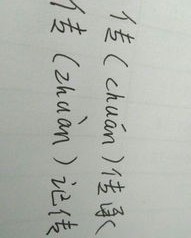 传（chuán）传承
传（zhuàn）记传